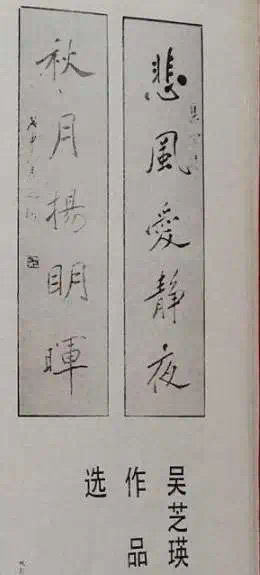 悲風愛靜夜
秋月揚明暉
吴芝瑛
作品
选